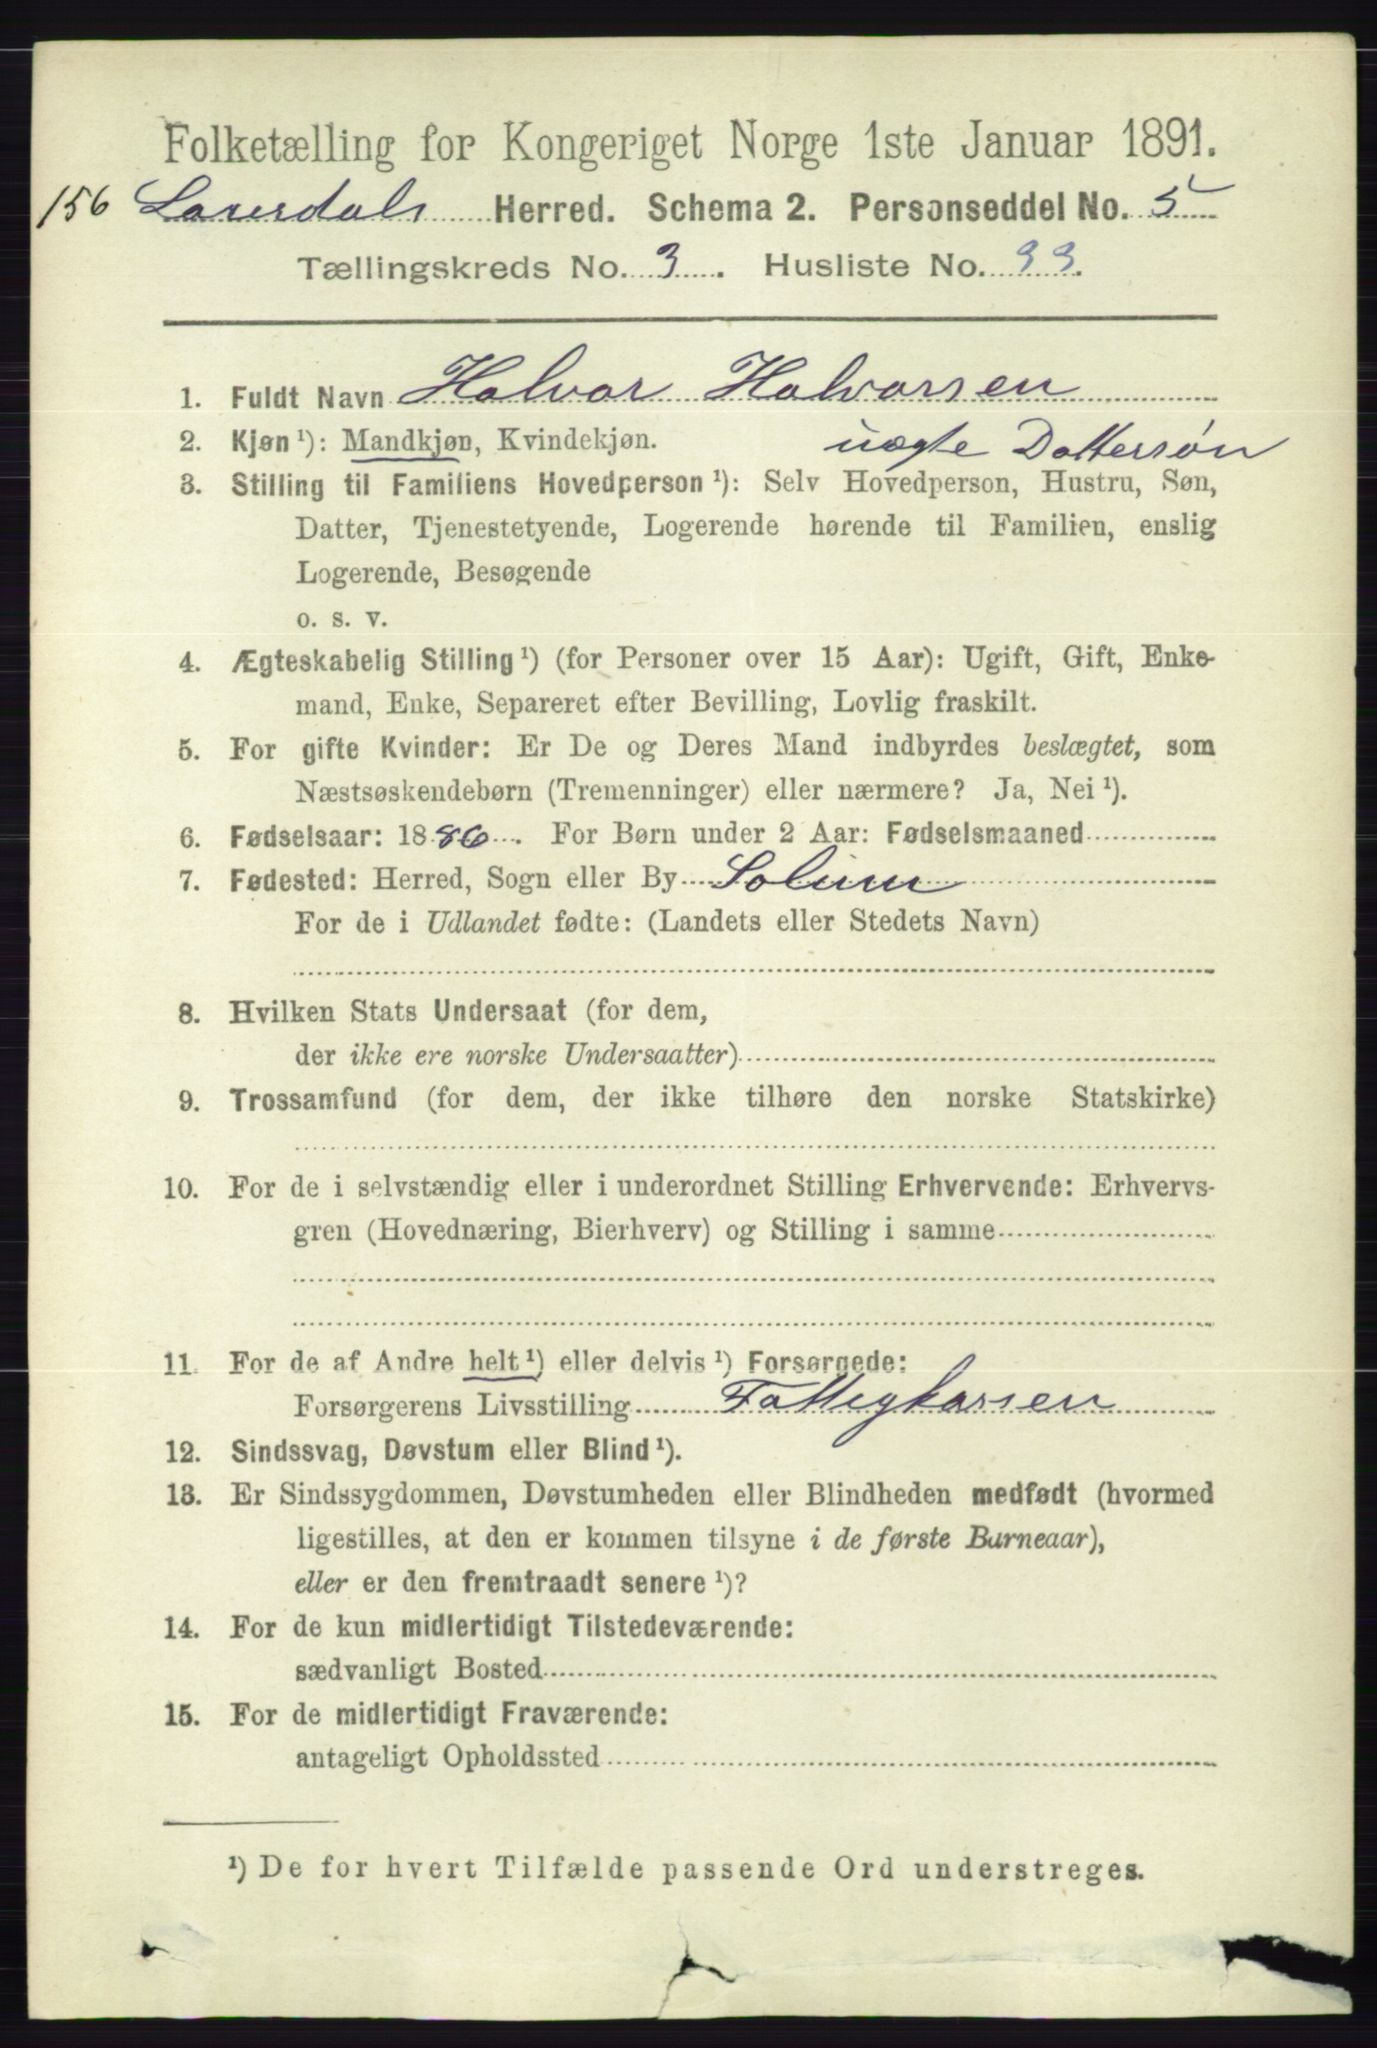 Folketælling for Kongeriget Norge 1ste Januar 1891.
156 Laurdals Herred. Schema 2. Personseddel No. 5
Tællingskreds No. 3. Husliste No. 33.
1. Fuldt Navn Halvor Halvorsen
2. Kjøn ¹): Mandkjøn, Kvindekjøn. uægte Dattersøn
3. Stilling til Familiens Hovedperson ¹): Selv Hovedperson, Hustru, Søn,
Datter, Tjenestetyende, Logerende hørende til Familien, enslig
Logerende, Besøgende
o. s. v.
4. Ægteskabelig Stilling ¹) (for Personer over 15 Aar): Ugift, Gift, Enke-
mand, Enke, Separeret efter Bevilling, Lovlig fraskilt.
5. For gifte Kvinder: Er De og Deres Mand indbyrdes beslægtet, som
Næstsøskendebørn (Tremenninger) eller nærmere? Ja, Nei ¹).
6. Fødselsaar: 1886. For Børn under 2 Aar: Fødselsmaaned
7. Fødested: Herred, Sogn eller By Solum
For de i Udlandet fødte: (Landets eller Stedets Navn)
8. Hvilken Stats Undersaat (for dem,
der ikke ere norske Undersaatter)
9. Trossamfund (for dem, der ikke tilhøre den norske Statskirke)
10. For de i selvstændig eller i underordnet Stilling Erhvervende: Erhvervs-
gren (Hovednæring, Bierhverv) og Stilling i samme
11. For de af Andre helt ¹) eller delvis ¹) Forsørgede:
Forsørgerens Livsstilling Fattigkassen
12. Sindssvag, Døvstum eller Blind ¹).
13. Er Sindssygdommen, Døvstumheden eller Blindheden medfødt (hvormed
ligestilles, at den er kommen tilsyne i de første Barneaar),
eller er den fremtraadt senere ¹)?
14. For de kun midlertidigt Tilstedeværende:
sædvanligt Bosted
15. For de midlertidigt Fraværende:
antageligt Opholdssted
¹) De for hvert Tilfælde passende Ord understreges.